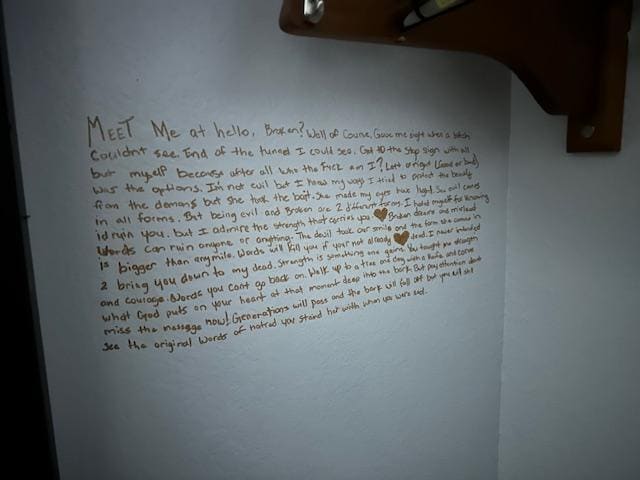 MEET Me at hello, Broken? Well of Course, Gave me sight when a bitch
Couldnt see. End of the tunnel I could see. Got to the stop sign with all
but myself because after all who the Frick am I? Left or right (Good or bad)
was the options. I'm not evil but I know my ways I tried to protect the beauty
from the demons but she took the bait. She made my eyes like lizard. Su evil comes
in all forms. But being evil and Broken are 2 different forms. I hated myself for knowing
id ruin you. but I admire the strength that carries you ♥ Broken dreams and mislead
words can ruin anyone or anything. The devil took our smile and the form she came in
is bigger than any mile. Words will kill you if your not already ♥ dead. I never intended
2 bring you down to my dead. Strength is something one gains. You taught me strength
and courage. Words you cant go back on. Walk up to a tree and with a knife and carve
what God puts on your heart at that moment deep into the bark. But pay attention dont
miss the message now! Generations will pass and the bark will fall off but you will still
see the original words of hatred you stand hot with when you were mad.